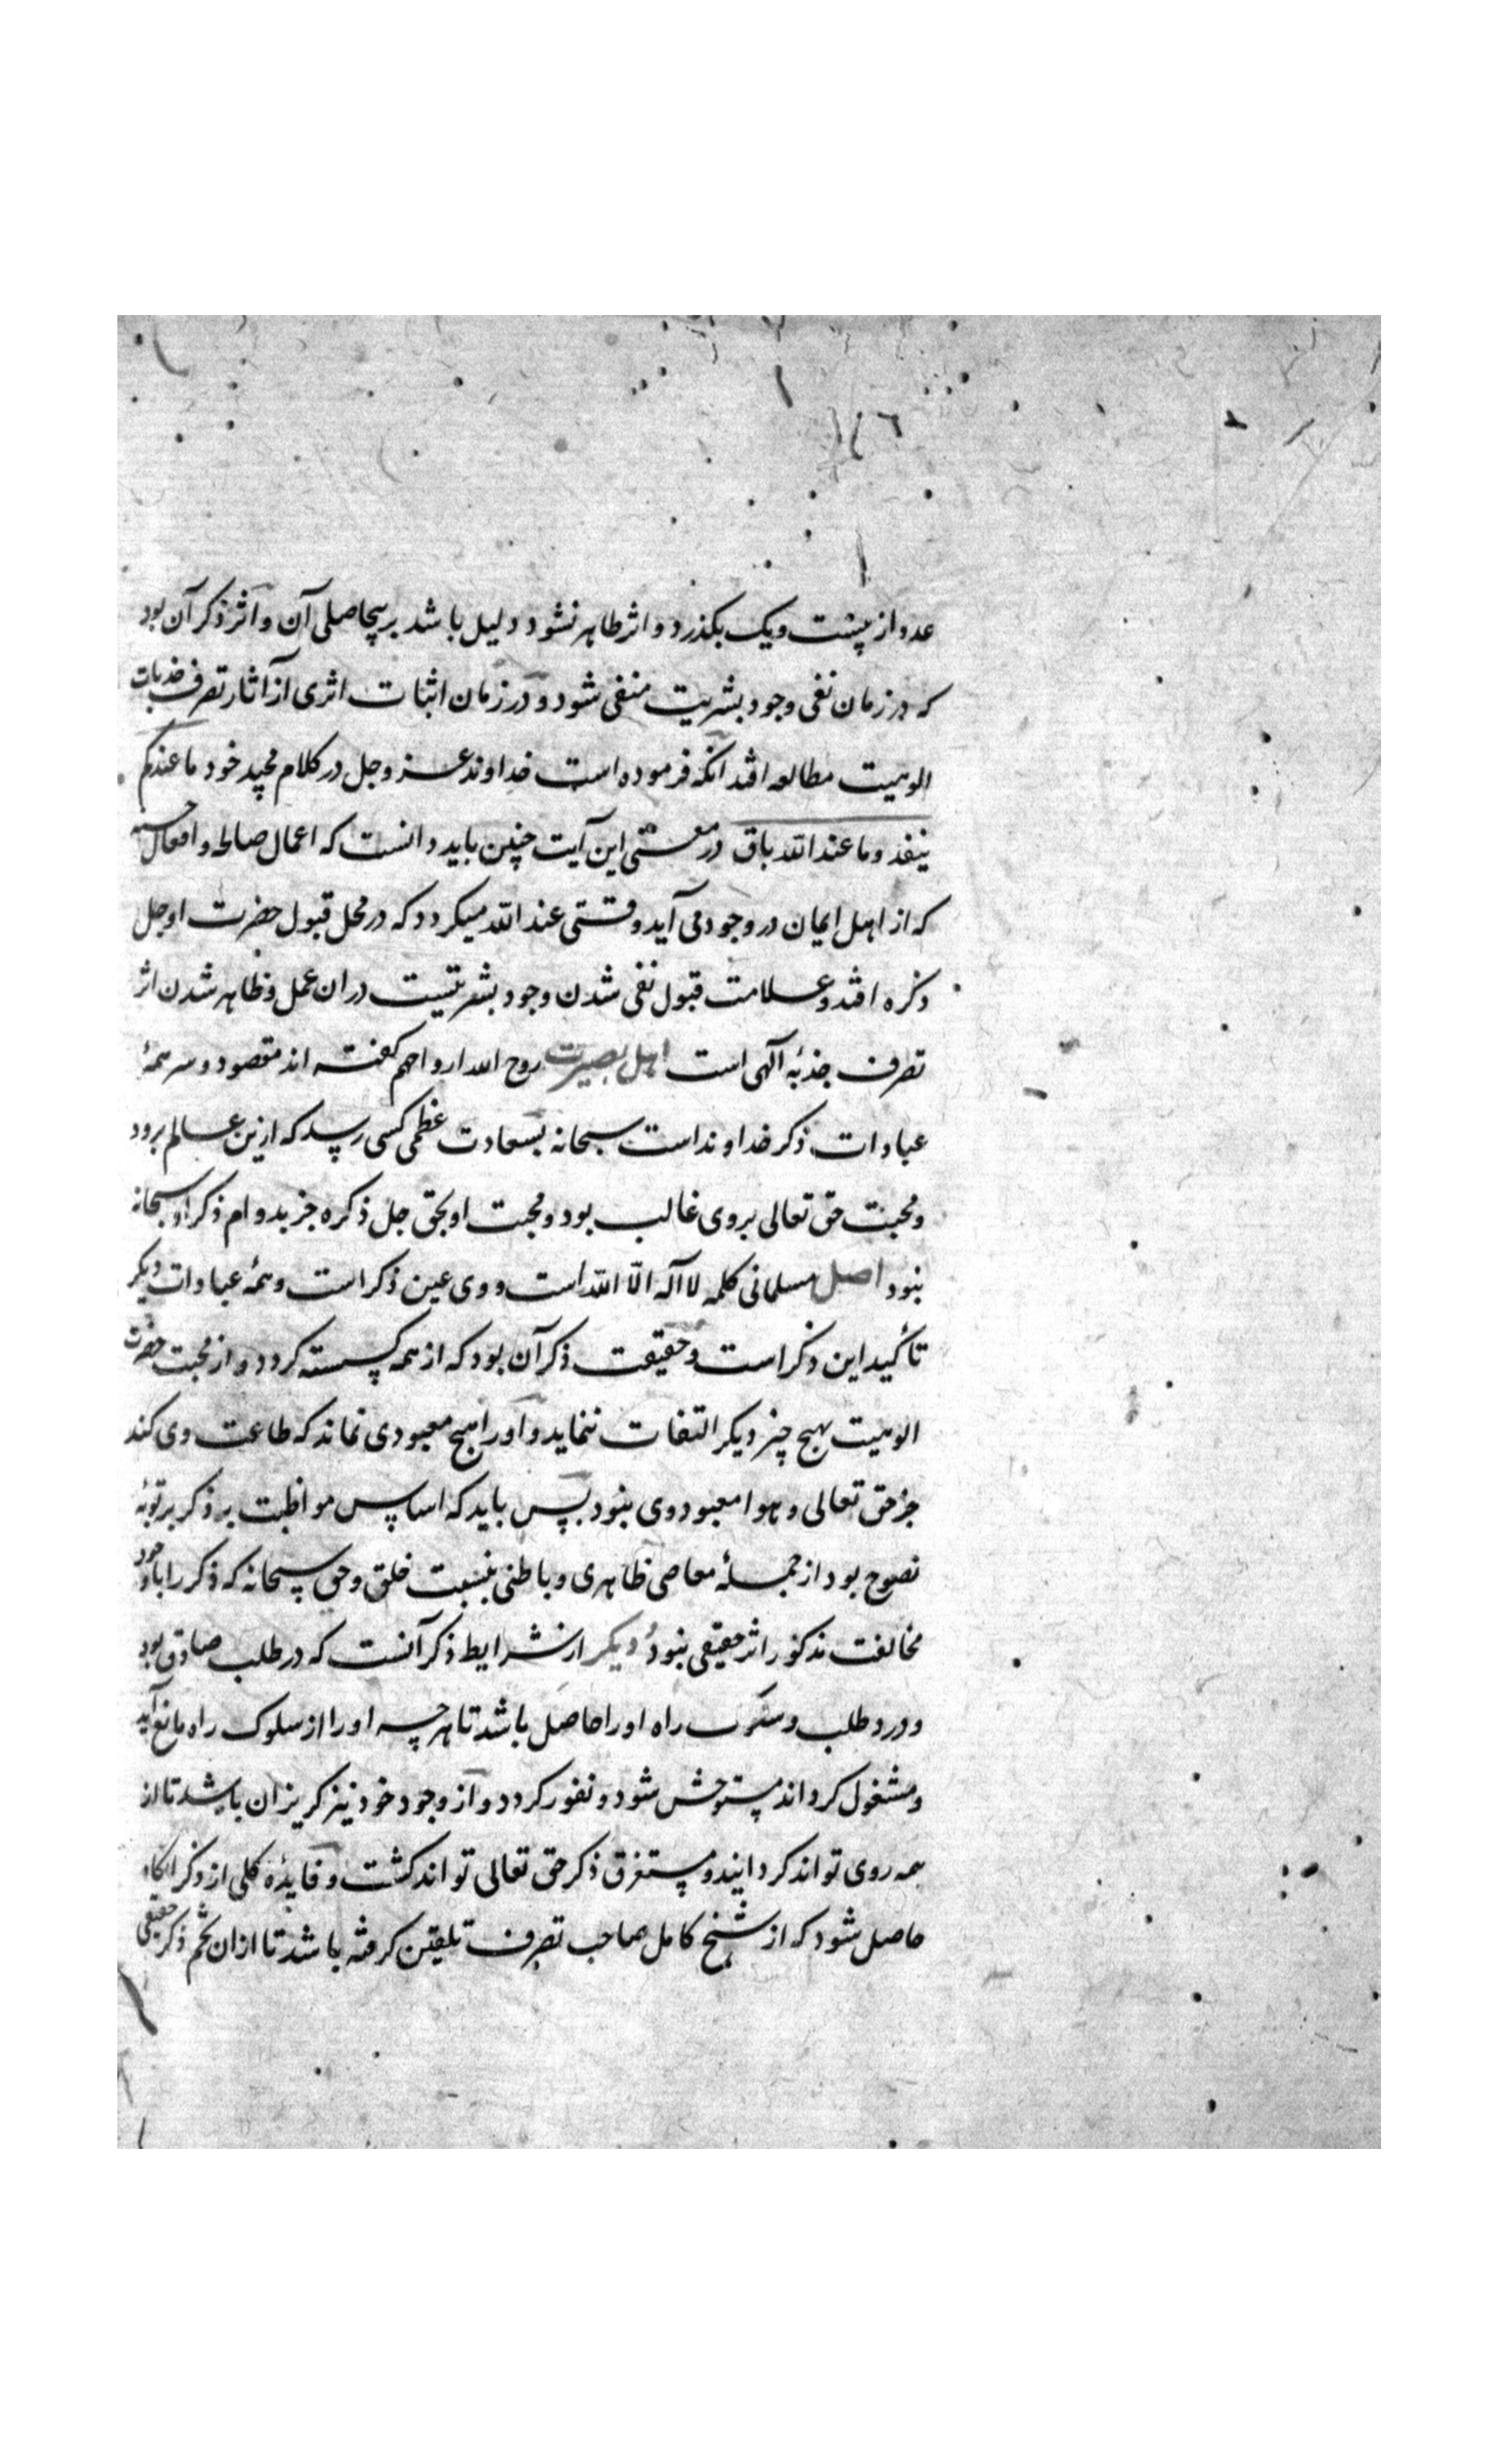 عدد از بیست و یک بگذرد و اثر ظاهر نشود دلیل باشد بر بیحاصلی آن و اثر ذکر آن بود
که در زمان نفی وجود بشریت منفی شود و در زمان اثبات اثری از آثار تصرف جذبات
الوهیت مطالعه افتد انکه فرموده است خداوند عز و جل در کلام مجید خود ما عندکم
ینفد و ما عند الله باق در معنی این آیت چنین باید دانست که اعمال صالحه و افعال حسنه
که از اهل ایمان در وجود می آید وقتی عند الله میکردد که در محل قبول حضرت او جل
ذکره افتد و علامت قبول نفی شدن وجود بشریتست در ان عمل و ظاهر شدن اثر
تصرف جذبهٔ آلهی است اهل بصیرت روح الله ارواحهم کفته اند مقصود و سر همهٔ
عبادات ذکر خداوند است سبحانه بسعادت عظمی کسی رسد که ازین عالم برود
و محبت حق تعالی بر وی غالب بود و محبت او بحق جل ذکره جز بدوام ذکر او سبحانه
نبود اصل مسلمانی کلمه لا اله الا الله است و وی عین ذکر است و همهٔ عبادات دیکر
تأکید این ذکر است و حقیقت ذکر آن بود که از همه کسسته کردد و از محبت حضرت
الوهیت بهیچ چیز دیکر التفات ننماید و او را هیچ معبودی نماند که طاعت وی کند
جز حق تعالی و هوا معبود وی نبود پس باید که اساس مواظبت به ذکر بر توبهٔ
نصوح بود از جملهٔ معاصی ظاهری و باطنی بنسبت خلق و حق سبحانه که ذکر را با وجود
مخالفت مذکور اثر حقیقی نبود دیکر از شرایط ذکر آنست که در طلب صادق بود
و درد طلب و سلوک راه او را حاصل باشد تا هر چه او را از سلوک راه مانع آید
و مشغول کرداند مستوحش شود و نفور کردد و از وجود خود نیز کریزان باشد تا از
همه روی تواند کردانید و مستغرق ذکر حق تعالی تواند کشت و فایدهٔ کلی از ذکر انکاه
حاصل شود که از شیخ کامل صاحب تصرف تلقین کرفته باشد تا از ان تخم ذکر حقیقی